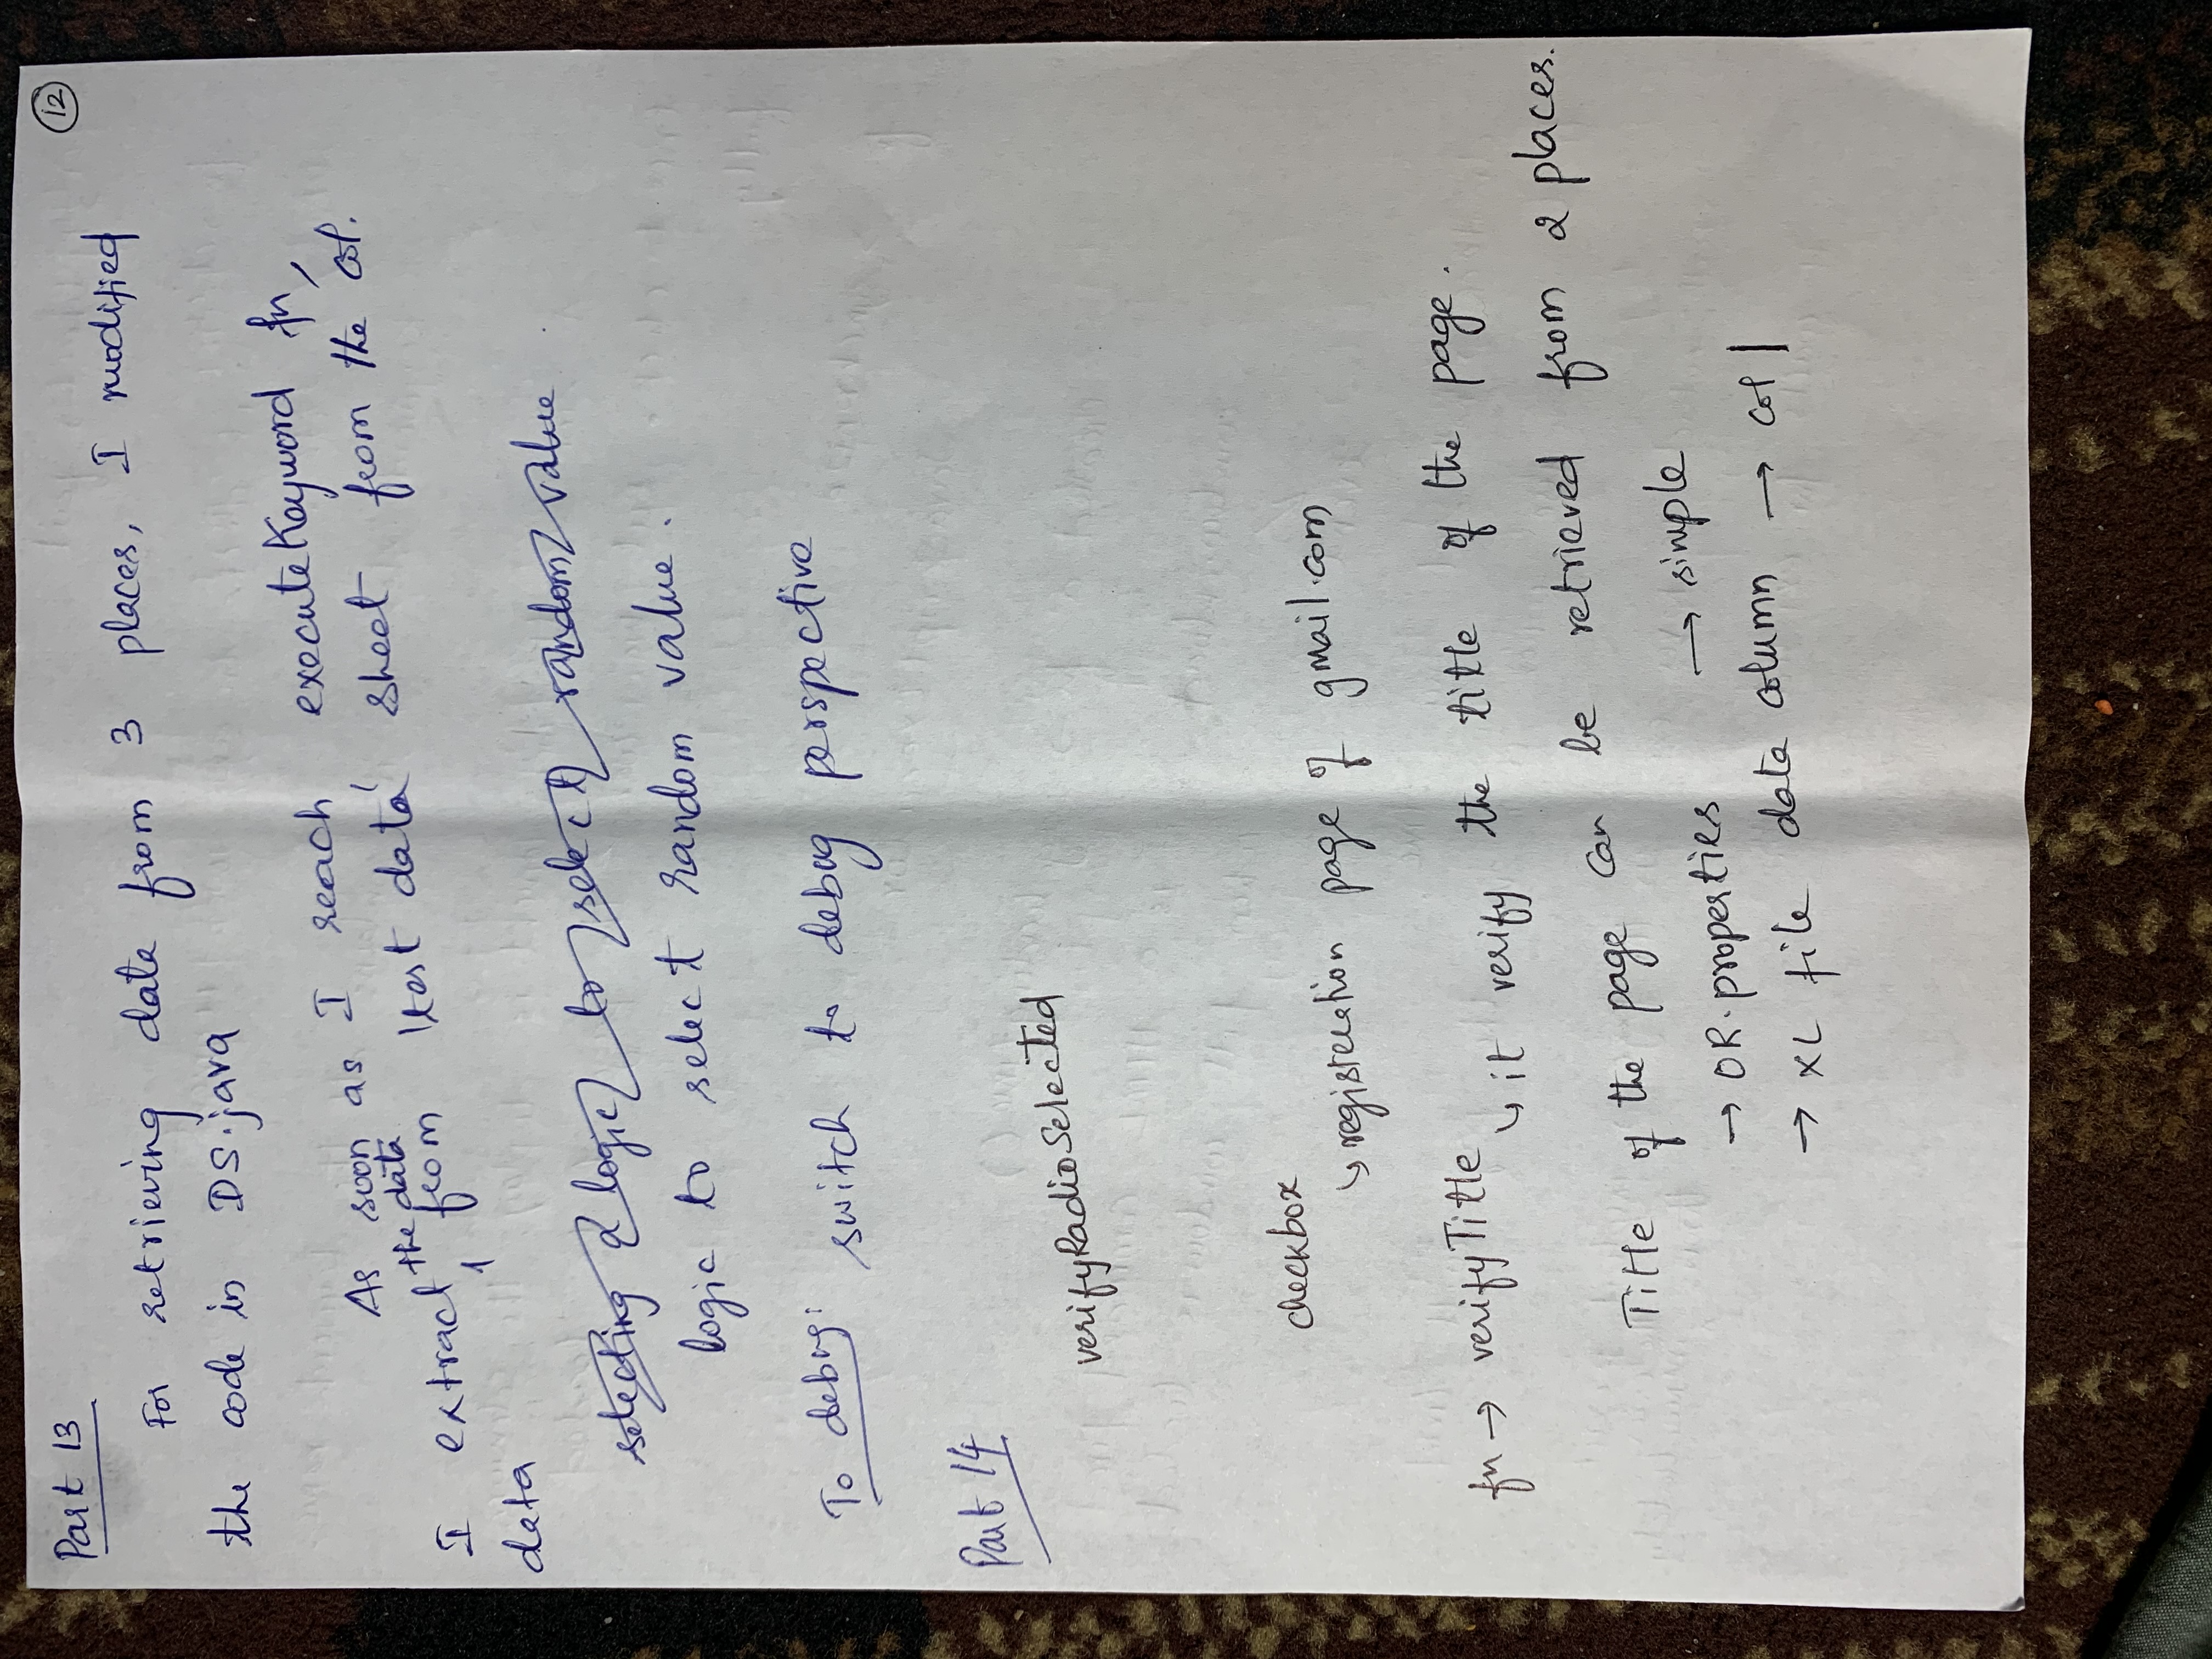 12
Part 13
For retrieving data from 3 places, I modified
the code in DS.java
As soon as I reach executeKeyword fn,
I extract the data from 'test data' sheet from the col.
data
selecting a logic to select random value
logic to select random value.
To debug: switch to debug perspective
Part 14
verifyRadioSelected
checkbox
↳ registration page of gmail.com
fn → verifyTitle
↳ it verify the title of the page.
Title of the page can be retrieved from 2 places.
→ OR.properties → simple
→ XL file data column → col|